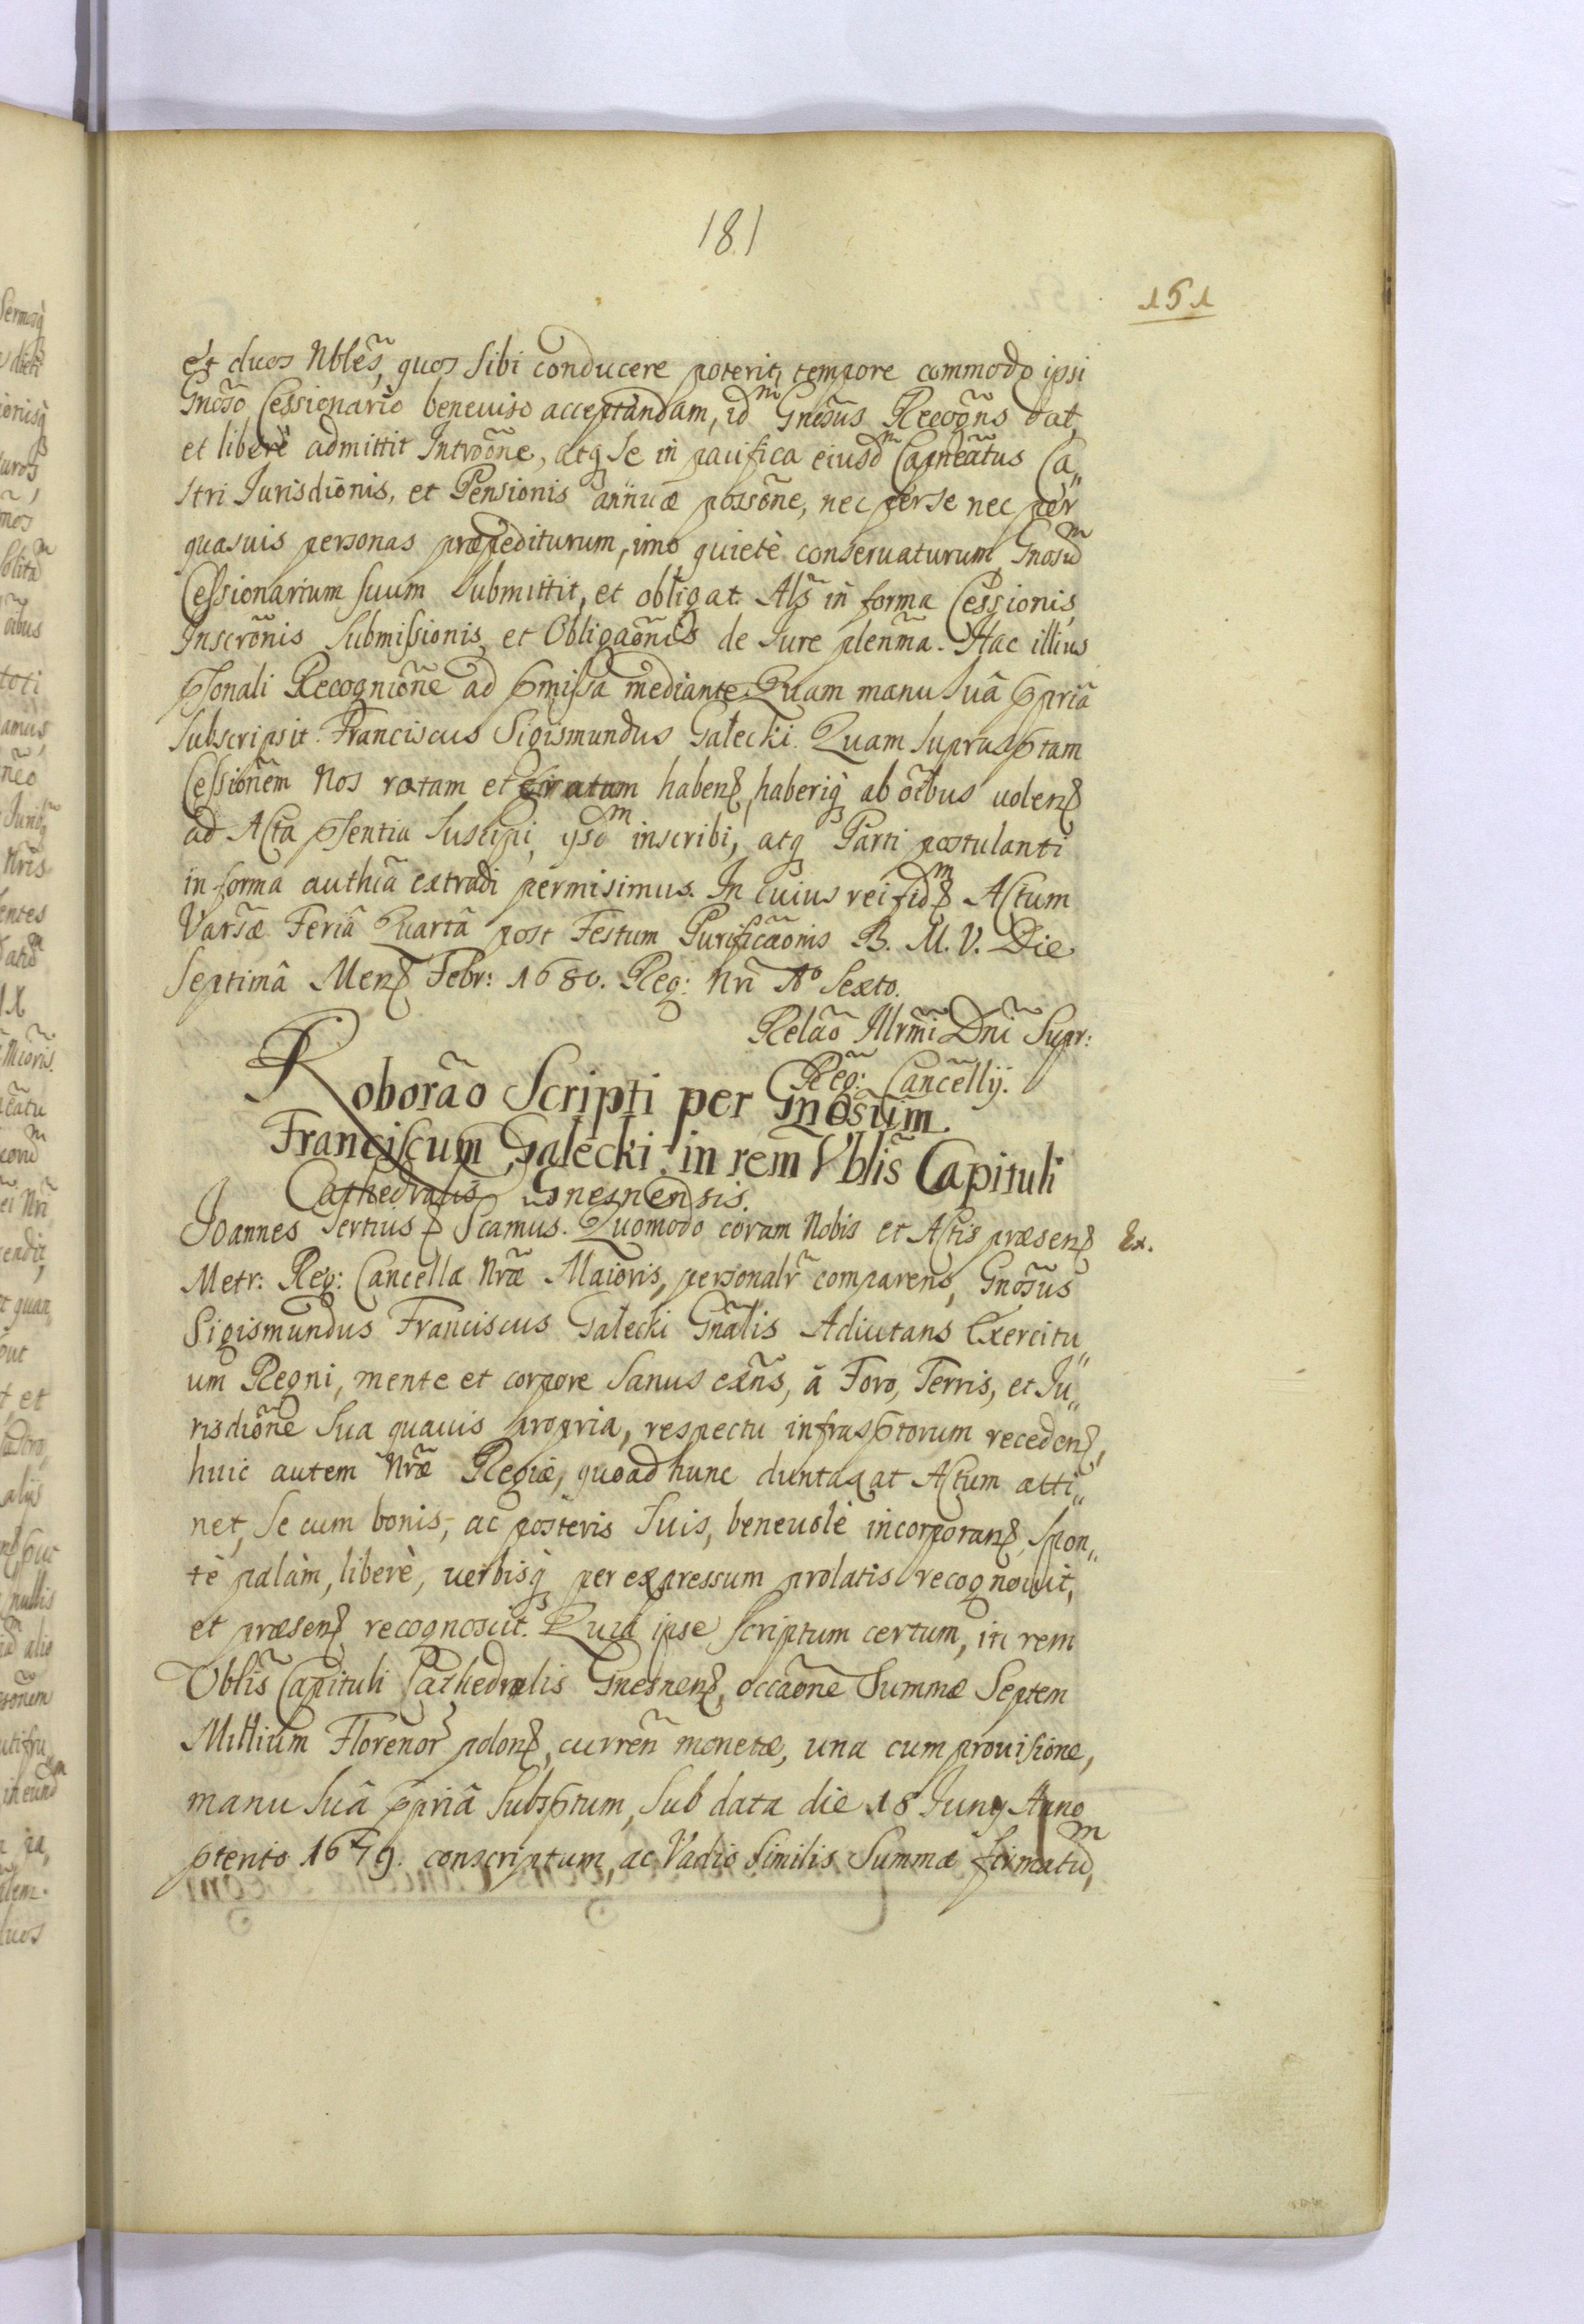 181
151
et duos Nbles, quos sibi conducere poterit, tempore commodo ipsi
Gnoso Cessionario beneuiso acceptandam, idm Gnosus Recogns dat,
et liberè admittit Introone, atq se in pacifica eiusdm Capneatus Ca„
stri Jurisdionis, et Pensionis annuæ possone, nec per se nec per
quasuis personas præpediturum, imo quietè conseruaturum Gnosum
Cessionarium suum submittit, et obligat. Als in forma Cessionis,
Inscronis Submissionis, et Obligaonis de Jure plenma. Hac illius
psonali Recognione ad pmissa mediante. Quam manu suâ ppriâ
subscripsit. Franciscus Sigismundus Gałecki. Quam suprasptam
Cessionem Nos ratam et gratam habens, haberiq ab oibus uolens
ad Acta psentia suscipi, ysdm inscribi, atq Parti postulanti
in forma authca extradi permisimus. In cuius rei fidm Actum
Varsæ Feriâ Quartâ post Festum Purificaonis B. M. V. Die
Septimâ Mens Febr: 1680. Reg: Nri Ao Sexto.
Relao Illrmi Dni Supr:
Reg: Cancellij.
Roborao Scripti per Gnosum
Franciscum Galecki in rem Vblis Capituli
Cathedralis Gnesnensis.
Joannes Tertius Scamus. Quomodo coram Nobis et Actis præsens Ex.
Metr: Reg: Cancellæ Nræ Maioris, personalr comparens, Gnosus
Sigismundus Franciscus Gałecki Gnalis Adiutans Exercitu„
um Regni, mente et corpore sanus exns, â Foro, Terris, et Ju„
risdione sua quauis propria, respectu infrasptorum recedens,
huic autem Nræ Regiæ, quoad hunc duntaxat Actum atti„
net, se cum bonis, ac posteris suis, beneuolè incorporans, spon„
tè palàm, liberè, uerbisq per expressum prolatis recognouit,
et præsens recognoscit. Quia ipse scriptum certum, in rem
Vblis Capituli Cathedralis Gnesnens, occaone Summæ Septem
Millium Florenor polons, curren monetæ, una cum prouisione,
manu suâ ppriâ subsptum, sub data die 18 Juny Anno
ptento 1679. conscriptum, ac Vadio similis Summæ firmatum,